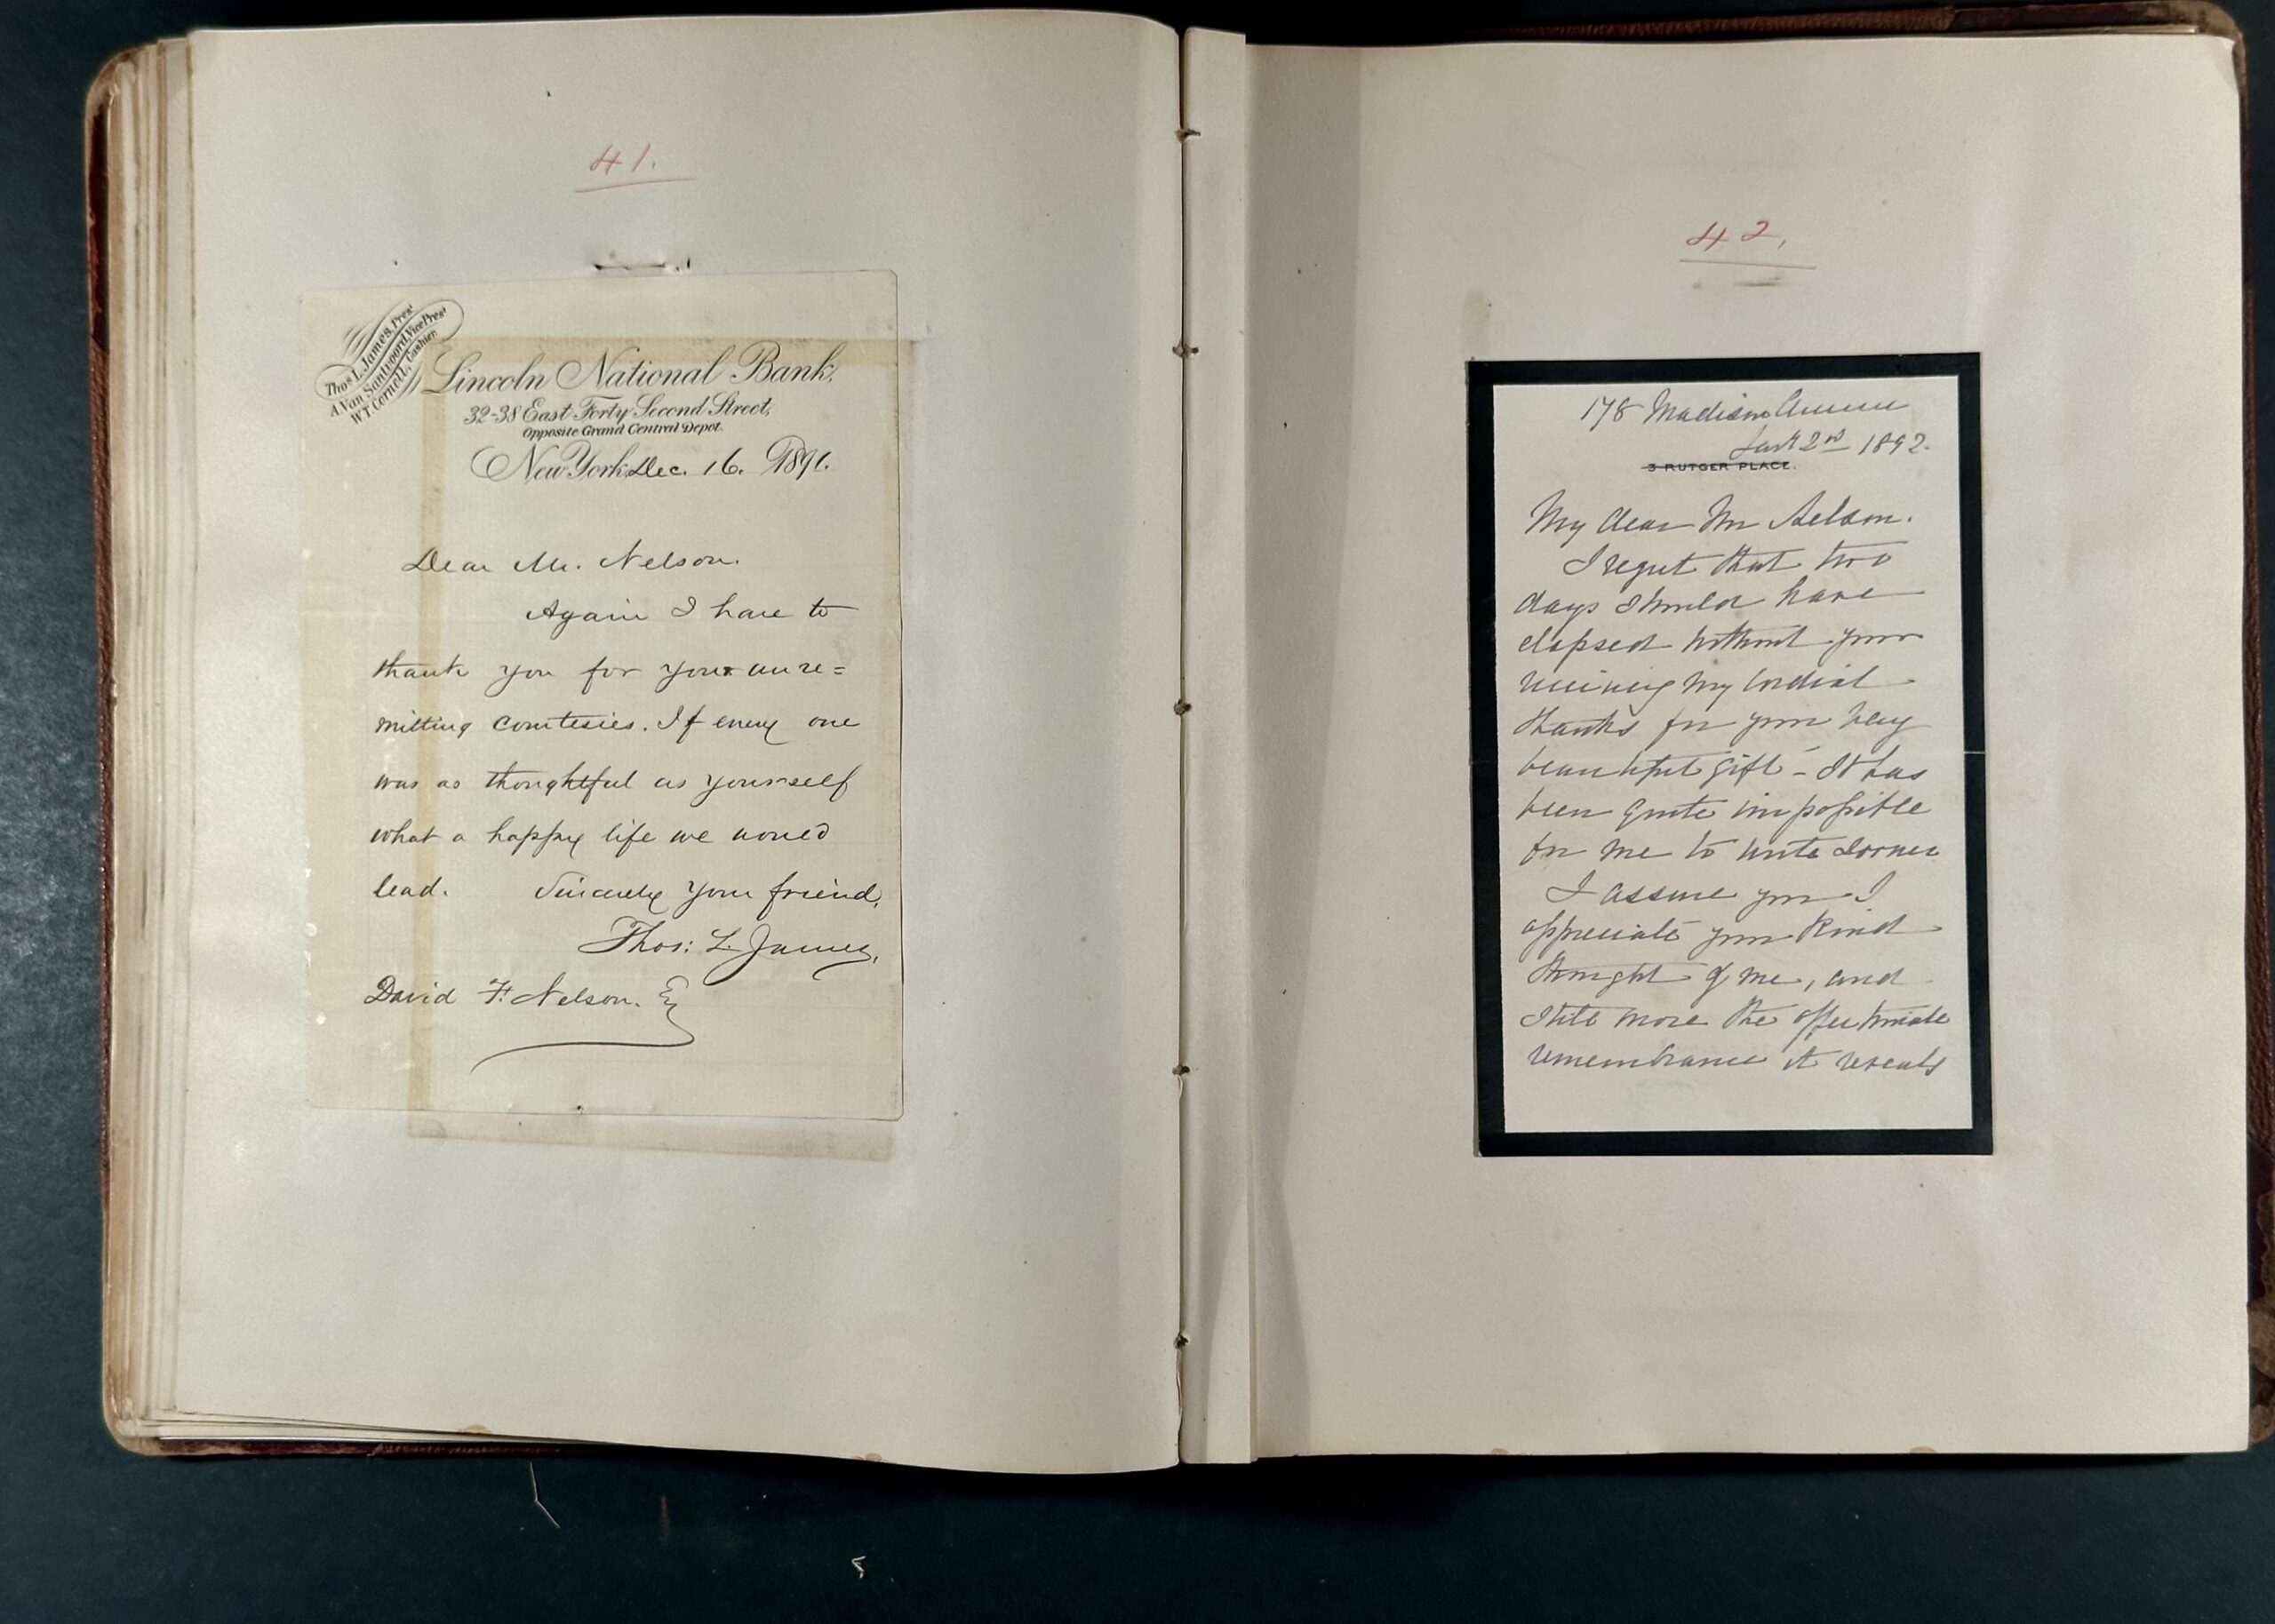 41.
Thos L. James, Prest
A. Van Santvoord, Vice Prest
W.T. Cornell, Cashier
Lincoln National Bank,
32-38 East Forty Second Street,
Opposite Grand Central Depot.
New York Dec. 16. 1891.
Dear Mr. Nelson.
Again I have to
thank you for your unre=
mitting courtesies. If every one
was as thoughtful as yourself
what a happy life we would
lead. Sincerely your friend,
Thos: L. James,
David F. Nelson. Esq
42.
178 Madison Avenue
Jany 2nd 1892.
3 RUTGER PLACE.
My dear Mr Nelson.
I regret that two
days should have
elapsed without your
receiving my cordial
thanks for your very
beautiful gift - It has
been quite impossible
for me to write sooner
I assure you I
appreciate your kind
thought of me, and
still more the affectionate
remembrance it reveals